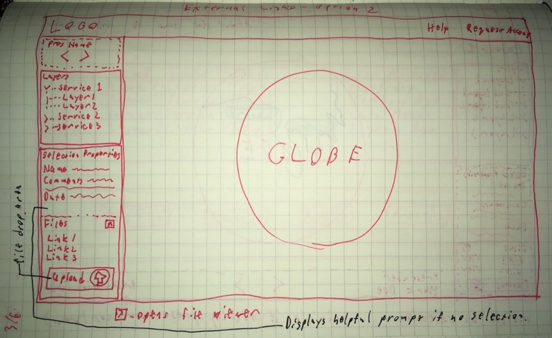 External Links - Option 2
LOGO
Help Request Access
Proj Name
< >
Layers
Service 1
Layer 1
Layer 2
Service 2
Service 3
GLOBE
Selection Properties
Name
Comments
Date
Files
Link 1
Link 2
Link 3
Upload
file drop area
- opens file viewer
Displays helpful prompt if no selection.